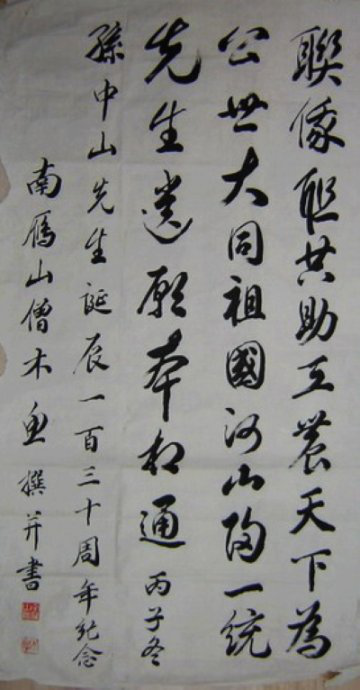 聯俄联共助工農天下為
公世大同祖國河山歸一統
先生遺願本相通 丙子冬
孫中山先生誕辰一百三十周年纪念
南雁山僧木魚撰并書